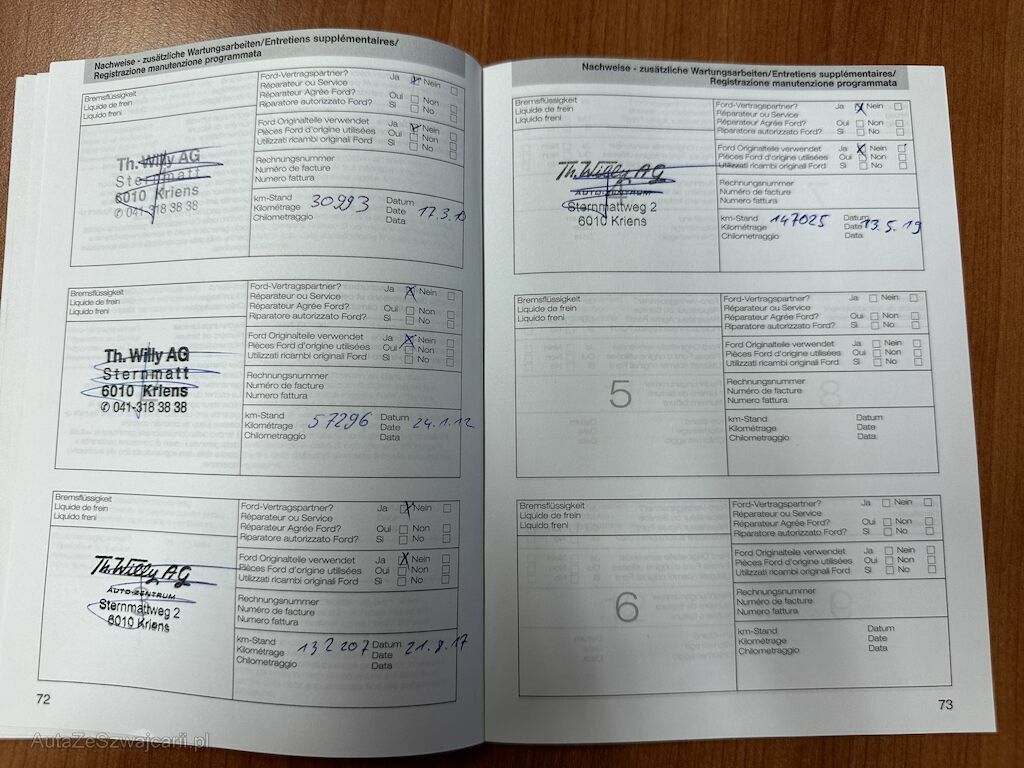 Nachweise - zusätzliche Wartungsarbeiten/Entretiens supplémentaires/
Registrazione manutenzione programmata
Bremsflüssigkeit
Liquide de frein
Liquido freni
Th. Willy AG
Sternmatt
6010 Kriens
✆ 041-318 38 38
Ford-Vertragspartner? Ja Nein
Réparateur ou Service
Réparateur Agrée Ford? Oui Non
Riparatore autorizzato Ford? Si No
Ford Originalteile verwendet Ja Nein
Pièces Ford d'origine utilisées Oui Non
Utilizzati ricambi originali Ford Si No
Rechnungsnummer
Numéro de facture
Numero fattura
km-Stand Datum
Kilométrage 30993 Date 17.3.10
Chilometraggio Data
Bremsflüssigkeit
Liquide de frein
Liquido freni
Th. Willy AG
Sternmatt
6010 Kriens
✆ 041-318 38 38
Ford-Vertragspartner? Ja Nein
Réparateur ou Service
Réparateur Agrée Ford? Oui Non
Riparatore autorizzato Ford? Si No
Ford Originalteile verwendet Ja Nein
Pièces Ford d'origine utilisées Oui Non
Utilizzati ricambi originali Ford Si No
Rechnungsnummer
Numéro de facture
Numero fattura
km-Stand Datum
Kilométrage 57296 Date 24.1.12
Chilometraggio Data
Bremsflüssigkeit
Liquide de frein
Liquido freni
Th. Willy AG
AUTO-ZENTRUM
Sternmattweg 2
6010 Kriens
Ford-Vertragspartner? Ja Nein
Réparateur ou Service
Réparateur Agrée Ford? Oui Non
Riparatore autorizzato Ford? Si No
Ford Originalteile verwendet Ja Nein
Pièces Ford d'origine utilisées Oui Non
Utilizzati ricambi originali Ford Si No
Rechnungsnummer
Numéro de facture
Numero fattura
km-Stand Datum
Kilométrage 132207 Date 21.8.17
Chilometraggio Data
72
Nachweise - zusätzliche Wartungsarbeiten/Entretiens supplémentaires/
Registrazione manutenzione programmata
Bremsflüssigkeit
Liquide de frein
Liquido freni
Th. Willy AG
AUTO-ZENTRUM
Sternmattweg 2
6010 Kriens
Ford-Vertragspartner? Ja Nein
Réparateur ou Service
Réparateur Agrée Ford? Oui Non
Riparatore autorizzato Ford? Si No
Ford Originalteile verwendet Ja Nein
Pièces Ford d'origine utilisées Oui Non
Utilizzati ricambi originali Ford Si No
Rechnungsnummer
Numéro de facture
Numero fattura
km-Stand Datum
Kilométrage 147025 Date 13.5.19
Chilometraggio Data
Bremsflüssigkeit
Liquide de frein
Liquido freni
5
Ford-Vertragspartner? Ja Nein
Réparateur ou Service
Réparateur Agrée Ford? Oui Non
Riparatore autorizzato Ford? Si No
Ford Originalteile verwendet Ja Nein
Pièces Ford d'origine utilisées Oui Non
Utilizzati ricambi originali Ford Si No
Rechnungsnummer
Numéro de facture
Numero fattura
km-Stand Datum
Kilométrage Date
Chilometraggio Data
Bremsflüssigkeit
Liquide de frein
Liquido freni
6
Ford-Vertragspartner? Ja Nein
Réparateur ou Service
Réparateur Agrée Ford? Oui Non
Riparatore autorizzato Ford? Si No
Ford Originalteile verwendet Ja Nein
Pièces Ford d'origine utilisées Oui Non
Utilizzati ricambi originali Ford Si No
Rechnungsnummer
Numéro de facture
Numero fattura
km-Stand Datum
Kilométrage Date
Chilometraggio Data
73
AutaZeSzwajcarii.pl